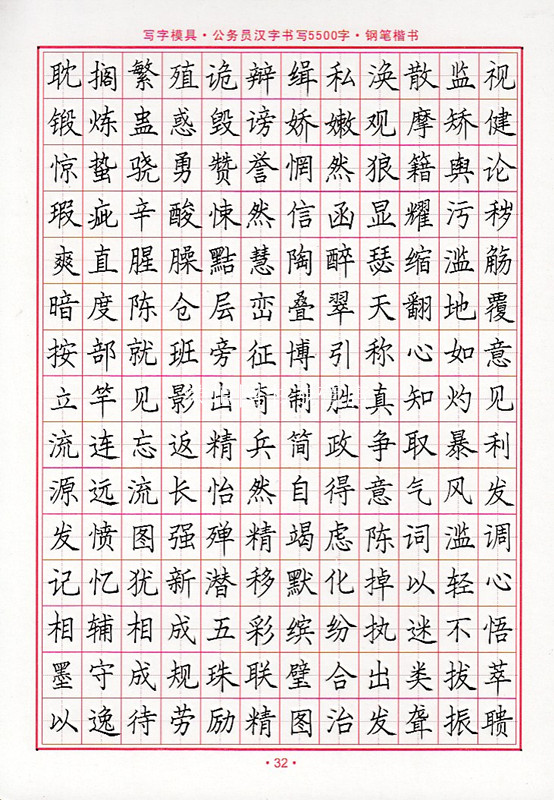 写字模具·公务员汉字书写5500字·钢笔楷书
耽搁繁殖诡辩缉私涣散监视
锻炼蛊惑毁谤娇嫩观摩矫健
惊蛰骁勇赞誉惘然狼籍舆论
瑕疵辛酸悚然信函显耀污秽
爽直腥臊黠慧陶醉瑟缩滥觞
暗度陈仓层峦叠翠天翻地覆
按部就班旁征博引称心如意
立竿见影出奇制胜真知灼见
流连忘返精兵简政争取暴利
源远流长怡然自得意气风发
发愤图强殚精竭虑陈词滥调
记忆犹新潜移默化掉以轻心
相辅相成五彩缤纷执迷不悟
墨守成规珠联璧合出类拔萃
以逸待劳励精图治发聋振聩
·32·